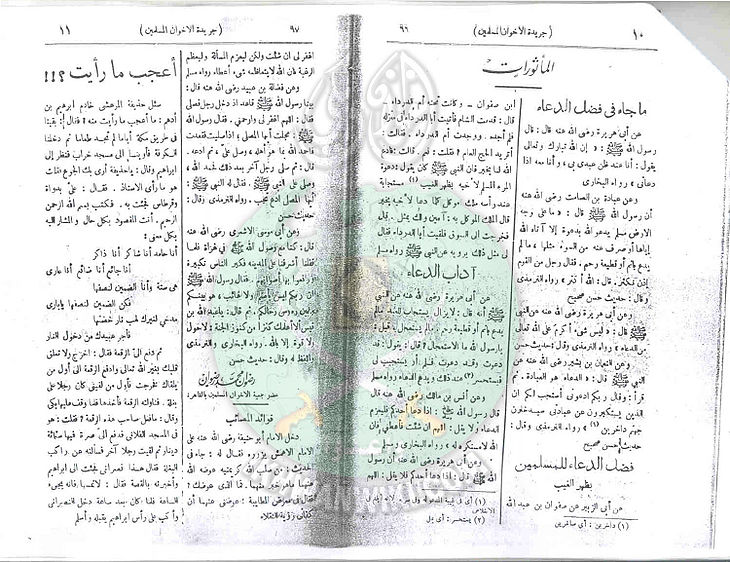 ١٠
(جريدة الاخوان المسلمين)
٩٦
المأثورات
ما جاء فى فضل الدعاء
عن أبى هريرة رضى الله عنه قال: قال
رسول الله ﷺ: « إن الله تبارك وتعالى
يقول: أنا عند ظن عبدى بى، وأنا معه اذا
دعانى » رواه البخارى
وعن عبادة بن الصامت رضى الله عنه
أن رسول الله ﷺ قال: « ما على وجه
الارض مسلم يدعو الله بدعوة إلا آتاه الله
إياها أو صرف عنه من السوء مثلها، ما لم
يدع بإثم أو قطيعة رحم، فقال رجل من القوم
إذن نكثر. قال: الله أكثر » رواه الترمذى
وقال: حديث حسن صحيح
ﷺ قال: « ليس شىء أكرم على الله تعالى
من الدعاء » رواه الترمذى وقال: حديث حسن
وعن النعمان بن بشير رضى الله عنه عن
النبى ﷺ قال: « الدعاء هو العبادة. ثم
قرأ: وقال ربكم ادعونى أستجب لكم ان
الذين يستكبرون عن عبادتى سيدخلون
جهنم داخرين (١) » رواه الترمذى وقال:
حديث حسن صحيح
فضل الدعاء للمسلمين
بظهر الغيب
عن أبى الزبير عن صفوان بن عبد الله
(١) داخرين: أى صاغرين
ابن صفوان - وكانت تحته أم الدرداء -
قال: قدمت الشام فأتيت أبا الدرداء فى منزله
فلم أجده. ووجدت أم الدرداء. فقالت:
أتريد الحج العام؟ فقلت: نعم. قالت: فادع
الله لنا بخير فان النبى ﷺ كان يقول: دعوة
المرء المسلم لأخيه بظهر الغيب (١) مستجابة
عند رأسه ملك موكل كلما دعا لأخيه بخير
قال الملك الموكل به: آمين ولك بمثل. قال
فخرجت الى السوق فلقيت أبا الدرداء فقال
لى مثل ذلك يرويه عن النبى ﷺ رواه مسلم
آداب الدعاء
عن أبى هريرة رضى الله عنه عن النبى
ﷺ أنه قال: لا يزال يستجاب للعبد ما لم
يدع بإثم أو قطيعة رحم ما لم يستعجل. قيل:
يارسول الله ما الاستعجال؟ قال: يقول: قد
دعوت وقد دعوت فلم أر يستجيب لى
فيستحسر (٢) عند ذلك ويدع الدعاء رواه مسلم
وعن أنس بن مالك رضى الله عنه قال
قال رسول الله ﷺ: اذا دعا أحدكم فليعزم
الدعاء ولا يقل: اللهم ان شئت فأعطنى فإن
الله لا مستكره له » رواه البخارى ومسلم
وعن أبى هريرة رضى الله عنه أن رسول
الله ﷺ قال: اذا دعا أحدكم فلا يقل: اللهم
(٢) يستحسر: أى يمل
٩٧
(جريدة الاخوان المسلمين)
١١
اغفر لى ان شئت ولكن ليعزم المسألة وليعظم
الرغبة فان الله لا يتعاظمه شىء أعطاه رواه مسلم
وعن فضالة بن عبيد رضى الله عنه قال:
بينا رسول الله ﷺ قاعد اذ دخل رجل فصلى
فقال: اللهم اغفر لى وارحمنى. فقال رسول الله
ﷺ: عجلت أيها المصلى، اذا صليت فقعدت
فاحمد الله بما هو أهله، وصل على، ثم ادعه.
قال: ثم صلى رجل آخر بعد ذلك فحمد الله،
وصلى على النبى ﷺ. فقال له النبى ﷺ:
أيها المصلى ادع تجب. رواه الترمذى وقال:
حديث حسن
وعن أبى موسى الاشعرى رضى الله عنه
قال: كنا مع رسول الله ﷺ فى غزاة فلما
قفلنا أشرفنا على المدينة فكبر الناس تكبيرة
ورفعوا بها أصواتهم. فقال رسول الله ﷺ
ان ربكم ليس بأصم ولا غائب، هو بينكم
وبين رءوس رحالكم. ثم قال: ياعبد الله بن
قيس ألا أعلمك كنزا من كنوز الجنة، لا حول
ولا قوة إلا بالله. رواه البخارى والترمذى
واللفظ له وقال: حديث حسن
رضوان محمد رضوان
عضو جمعية الاخوان المسلمين بالقاهرة
فوائد المصائب
دخل الامام أبو حنيفة رضى الله عنه على
الامام الاعمش يزوره فقال له: جاء فى
الحديث: من سلب الله كريمتيه عوضه الله
عنهما ماهو خير منهما. فما الذى عوضك؟
فقال فى معرض المطايبة: عوضنى عنهما أن
كفانى رؤية الثقلاء
أعجب ما رأيت ؟!!
سئل حذيفة المرعشى خادم ابراهيم بن
أدهم: ما أعجب ما رأيت منه؟ فقال: بقينا
فى طريق مكة أياما لم نجد طعاما ثم دخلنا
الكوفة فأوينا الى مسجد خراب فنظر إلى
ابراهيم وقال: ياحذيفة أرى بك الجوع فقلت
هو ما رأى الاستاذ. فقال: على بدواة
وقرطاس فجئت به. فكتب بسم الله الرحمن
الرحيم. أنت المقصود بكل حال والمشار اليه
بكل معنى:
أنا حامد أنا شاكر أنا ذاكر
أنا جائع أنا ضائع أنا عارى
هى ستة وأنا الضمين لنصفها
فكن الضمين لنصفها يابارى
مدحى لغيرك لهب نار خضتها
فأجر عبيدك من دخول النار
ثم دفع الى الرقعة فقال: اخرج ولا تعلق
قلبك بغير الله تعالى وادفع الرقعة الى أول من
يلقاك فخرجت فأول من لقينى كان رجلا على
بغلة. فناولته الرقعة فأخذها فلما وقف عليها بكى
وقال: ما فعل صاحب هذه الرقعة؟ فقلت: هو
فى المسجد الفلانى فدفع الى صرة فيها ستمائة
دينار ثم لقيت رجلا آخر فسألته عن راكب
البغلة فقال هذا نصرانى فجئت الى ابراهيم
وأخبرته بالقصة فقال: لا تمسها فانه يجىء
الساعة فلما كان بعد ساعة دخل النصرانى
وأكب على رأس ابراهيم يقبله وأسلم